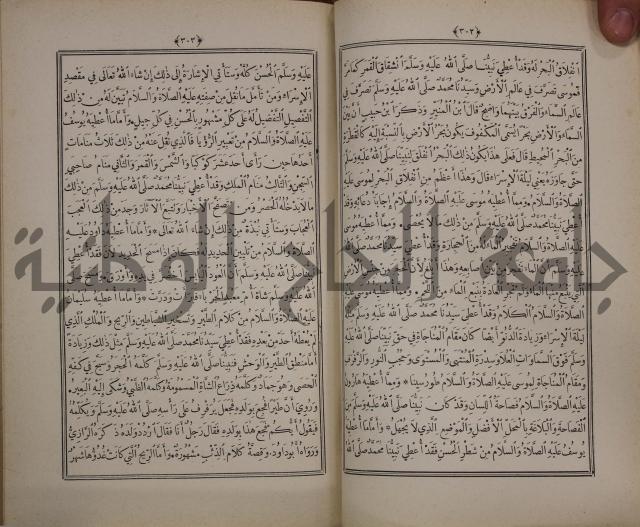 ﴿٣٠٢﴾
انفلاق البحر له وقد أعطي نبينا صلى الله عليه وسلم انشقاق القمر كما مر
فموسى تصرف في عالم الأرض وسيدنا محمد صلى الله عليه وسلم تصرف في
عالم السماء والفرق بينهما واضح قال ابن المنير وذكر ابن حبيب أن بين
السماء والأرض بحرا يسمى المكفوف يكون بحر الأرض بالنسبة إليه كالقطرة
من البحر المحيط قال فعلى هذا يكون ذلك البحر انفلق لنبينا صلى الله عليه وسلم
حتى جاوزه يعني ليلة الإسراء قال وهذا أعظم من انفلاق البحر لموسى عليه
الصلاة والسلام ومما أعطيه موسى عليه الصلاة والسلام إجابة دعائه وقد
أعطي نبينا محمد صلى الله عليه وسلم من ذلك ما لا يحصى ومما أعطيه موسى
عليه الصلاة والسلام تفجير الماء له من الحجارة وقد أعطي سيدنا محمد صلى الله
عليه وسلم
الصلاة والسلام الكلام وقد أعطي سيدنا محمد صلى الله عليه وسلم
ليلة الإسراء وزيادة الدنو أيضا كان مقام المناجاة في حق نبينا صلى الله عليه
وسلم فوق السموات العلا وسدرة المنتهى والمستوى وحجب النور والرفرف
ومقام المناجاة لموسى عليه الصلاة والسلام طور سيناء ومما أعطيه هارون
عليه الصلاة والسلام فصاحة اللسان وقد كان نبينا صلى الله عليه وسلم من
الفصاحة والبلاغة بالمحل الأفضل والموضع الذي لا يجهل وأما ما أعطيه
يوسف عليه الصلاة والسلام من شطر الحسن فقد أعطي نبينا محمد صلى الله
﴿٣٠٣﴾
عليه وسلم الحسن كله وستأتي الإشارة إلى ذلك إن شاء الله تعالى في مقصد
الإسراء ومن تأمل ما نقل من صفته عليه الصلاة والسلام تبين له من ذلك
التفصيل التفضيل له على كل مشهور بالحسن في كل جيل وأما ما أعطيه يوسف
عليه الصلاة والسلام من تعبير الرؤيا فالذي نقل عنه من ذلك ثلاث منامات
أحدها حين رأى أحد عشر كوكبا والشمس والقمر والثاني منام صاحبي
السجن والثالث منام الملك وقد أعطي نبينا محمد صلى الله عليه وسلم من ذلك
ما لا يدخله الحصر ومن تصفح الأخبار وتتبع الآثار وجد من ذلك العجب
العجاب وستأتي نبذة من ذلك إن شاء الله تعالى وأما ما أعطيه داود عليه
الصلاة والسلام من تليين الحديد له فكان إذا مسح الحديد لان فقد أعطي
نبينا صلى الله عليه وسلم أن العود اليابس
الله عليه وسلم شاة أم معبد الجرباء فبرأت ودرت وأما ما أعطيه سليمان
عليه الصلاة والسلام من كلام الطير وتسخير الشياطين والريح والملك الذي
لم يعطه أحد من بعده فقد أعطي سيدنا محمد صلى الله عليه وسلم مثل ذلك وزيادة
أما منطق الطير والوحش فنبينا صلى الله عليه وسلم كلمه الحجر وسبح في كفه
الحصى وهو جماد وكلمه ذراع الشاة المسمومة وكلمه الظبي وشكى إليه البعير
وروي أن طيرا فجع بولده فجعل يرفرف على رأسه صلى الله عليه وسلم ويكلمه
فيقول أيكم فجع هذا بولده فقال رجل أنا فقال اردد ولده ذكره الرازي
ورواه أبو داود وقصة كلام الذئب مشهورة وأما الريح التي كانت غدوها شهر
جامعة النجاح الوطنية